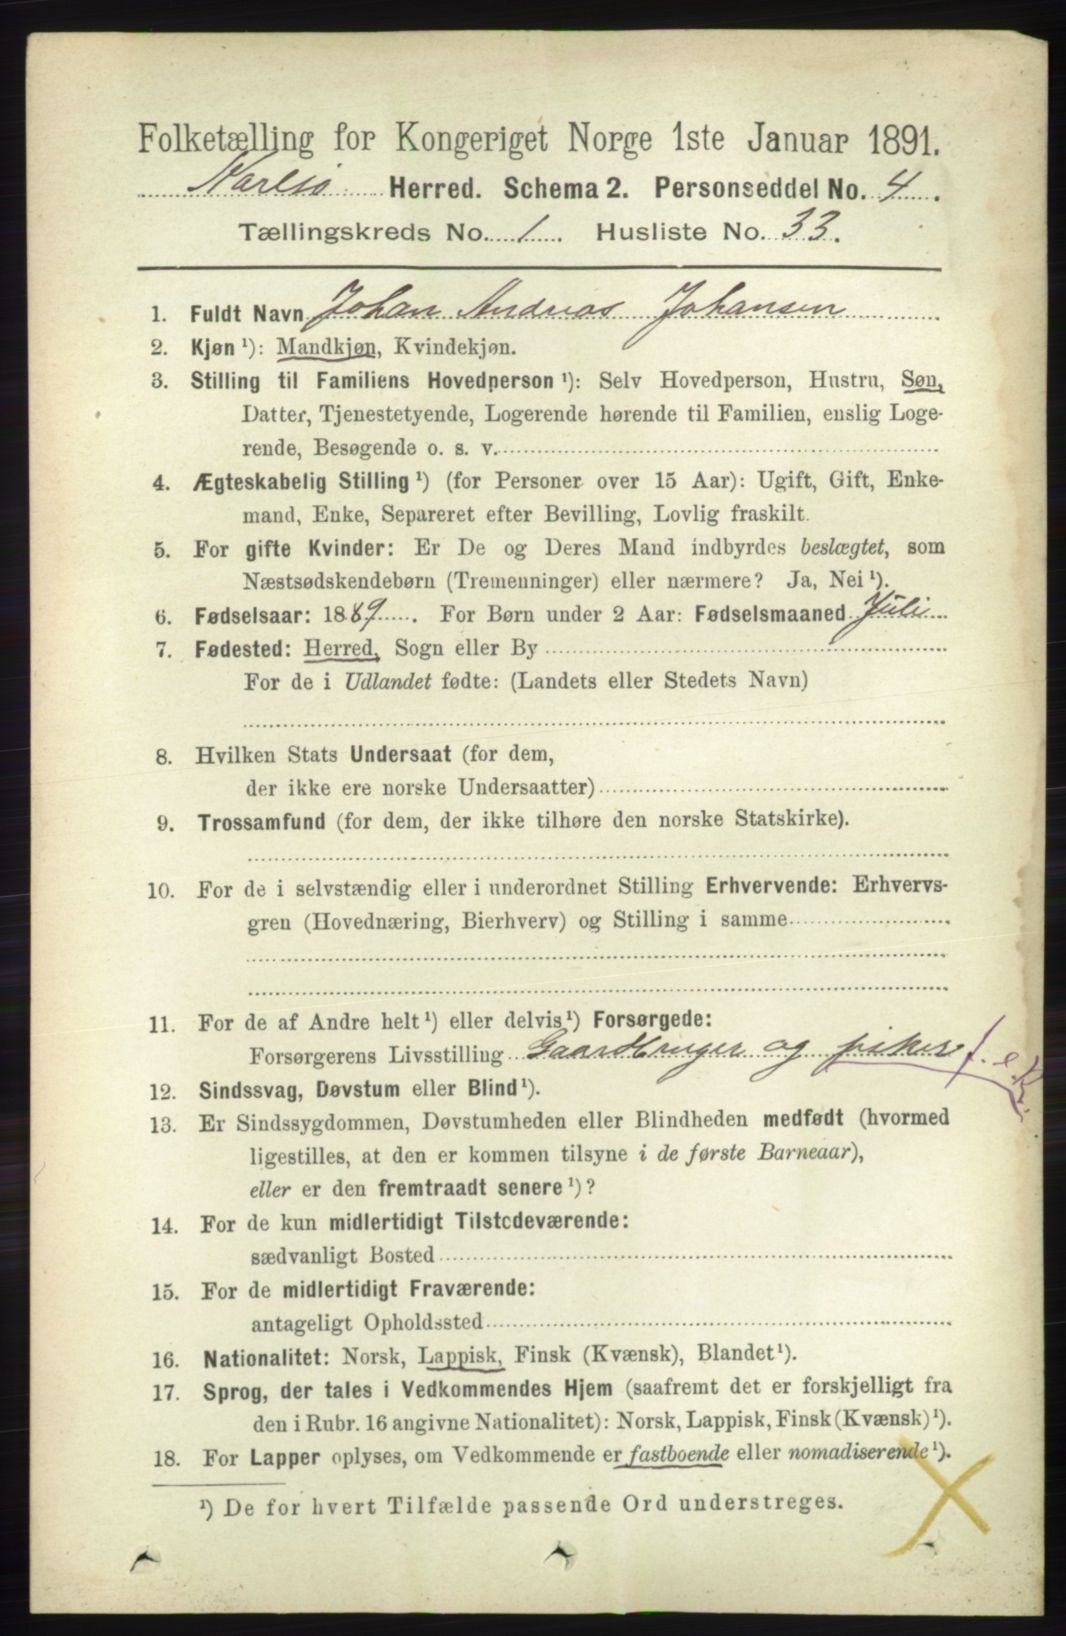 Folketælling for Kongeriget Norge 1ste Januar 1891.
Karlsø Herred. Schema 2. Personseddel No. 4.
Tællingskreds No. 1. Husliste No. 33.
1. Fuldt Navn Johan Andreas Johansen
2. Kjøn ¹): Mandkjøn, Kvindekjøn.
3. Stilling til Familiens Hovedperson ¹): Selv Hovedperson, Hustru, Søn,
Datter, Tjenestetyende, Logerende hørende til Familien, enslig Loge-
rende, Besøgende o. s. v.
4. Ægteskabelig Stilling ¹) (for Personer over 15 Aar): Ugift, Gift, Enke-
mand, Enke, Separeret efter Bevilling, Lovlig fraskilt.
5. For gifte Kvinder: Er De og Deres Mand indbyrdes beslægtet, som
Næstsødskendebørn (Tremenninger) eller nærmere? Ja, Nei ¹).
6. Fødselsaar: 1889. For Børn under 2 Aar: Fødselsmaaned Juli
7. Fødested: Herred, Sogn eller By
For de i Udlandet fødte: (Landets eller Stedets Navn)
8. Hvilken Stats Undersaat (for dem,
der ikke ere norske Undersaatter)
9. Trossamfund (for dem, der ikke tilhøre den norske Statskirke).
10. For de i selvstændig eller i underordnet Stilling Erhvervende: Erhvervs-
gren (Hovednæring, Bierhverv) og Stilling i samme
11. For de af Andre helt ¹) eller delvis ¹) Forsørgede:
Forsørgerens Livsstilling Gaardbruger og fisker f. e. R.
12. Sindssvag, Døvstum eller Blind ¹).
13. Er Sindssygdommen, Døvstumheden eller Blindheden medfødt (hvormed
ligestilles, at den er kommen tilsyne i de første Barneaar),
eller er den fremtraadt senere ¹)?
14. For de kun midlertidigt Tilstedeværende:
sædvanligt Bosted
15. For de midlertidigt Fraværende:
antageligt Opholdssted
16. Nationalitet: Norsk, Lappisk, Finsk (Kvænsk), Blandet ¹).
17. Sprog, der tales i Vedkommendes Hjem (saafremt det er forskjelligt fra
den i Rubr. 16 angivne Nationalitet): Norsk, Lappisk, Finsk (Kvænsk) ¹).
18. For Lapper oplyses, om Vedkommende er fastboende eller nomadiserende ¹).
¹) De for hvert Tilfælde passende Ord understreges.